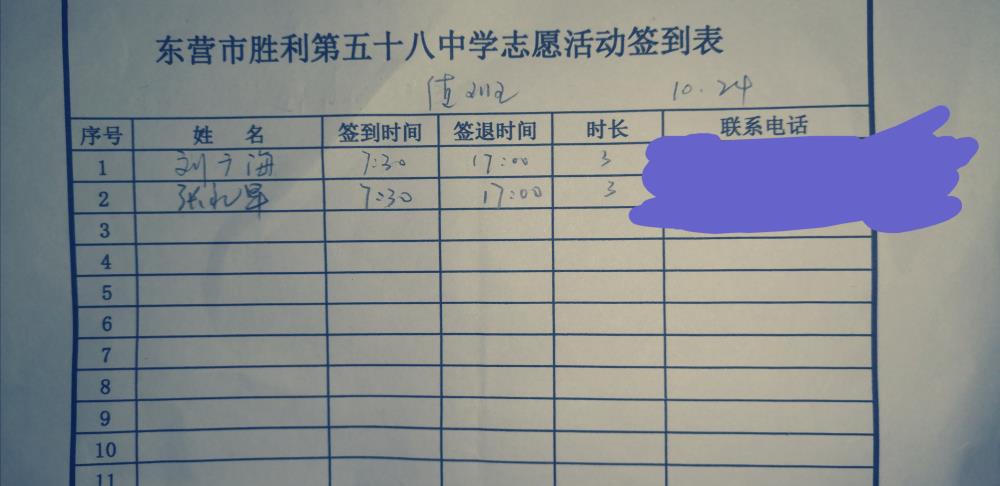 东营市胜利第五十八中学志愿活动签到表
值班 10.24
序号 姓 名 签到时间 签退时间 时长 联系电话
1 刘广海 7:30 17:00 3
2 张 7:30 17:00 3
3
4
5
6
7
8
9
10
11